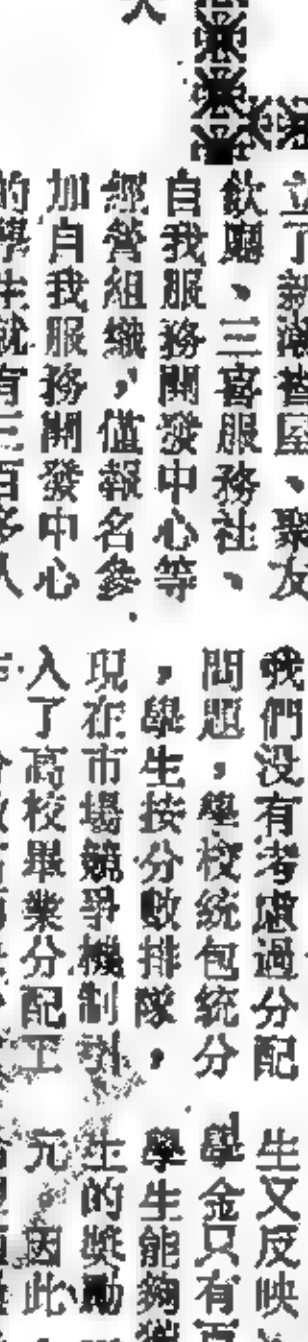 大
立了新潮書屋、聚友
飲廳、三喜服務社、
自我服務開發中心等
經營組織，僅報名參
加自我服務開發中心
的學生就有三百多人
我們没有考慮過分配
問題，學校統包統分
，學生按分數排隊，
現在市場競爭機制引
入了高校畢業分配工
生又反映
學金只有百
學生能夠獲
生的獎勵
元。因此